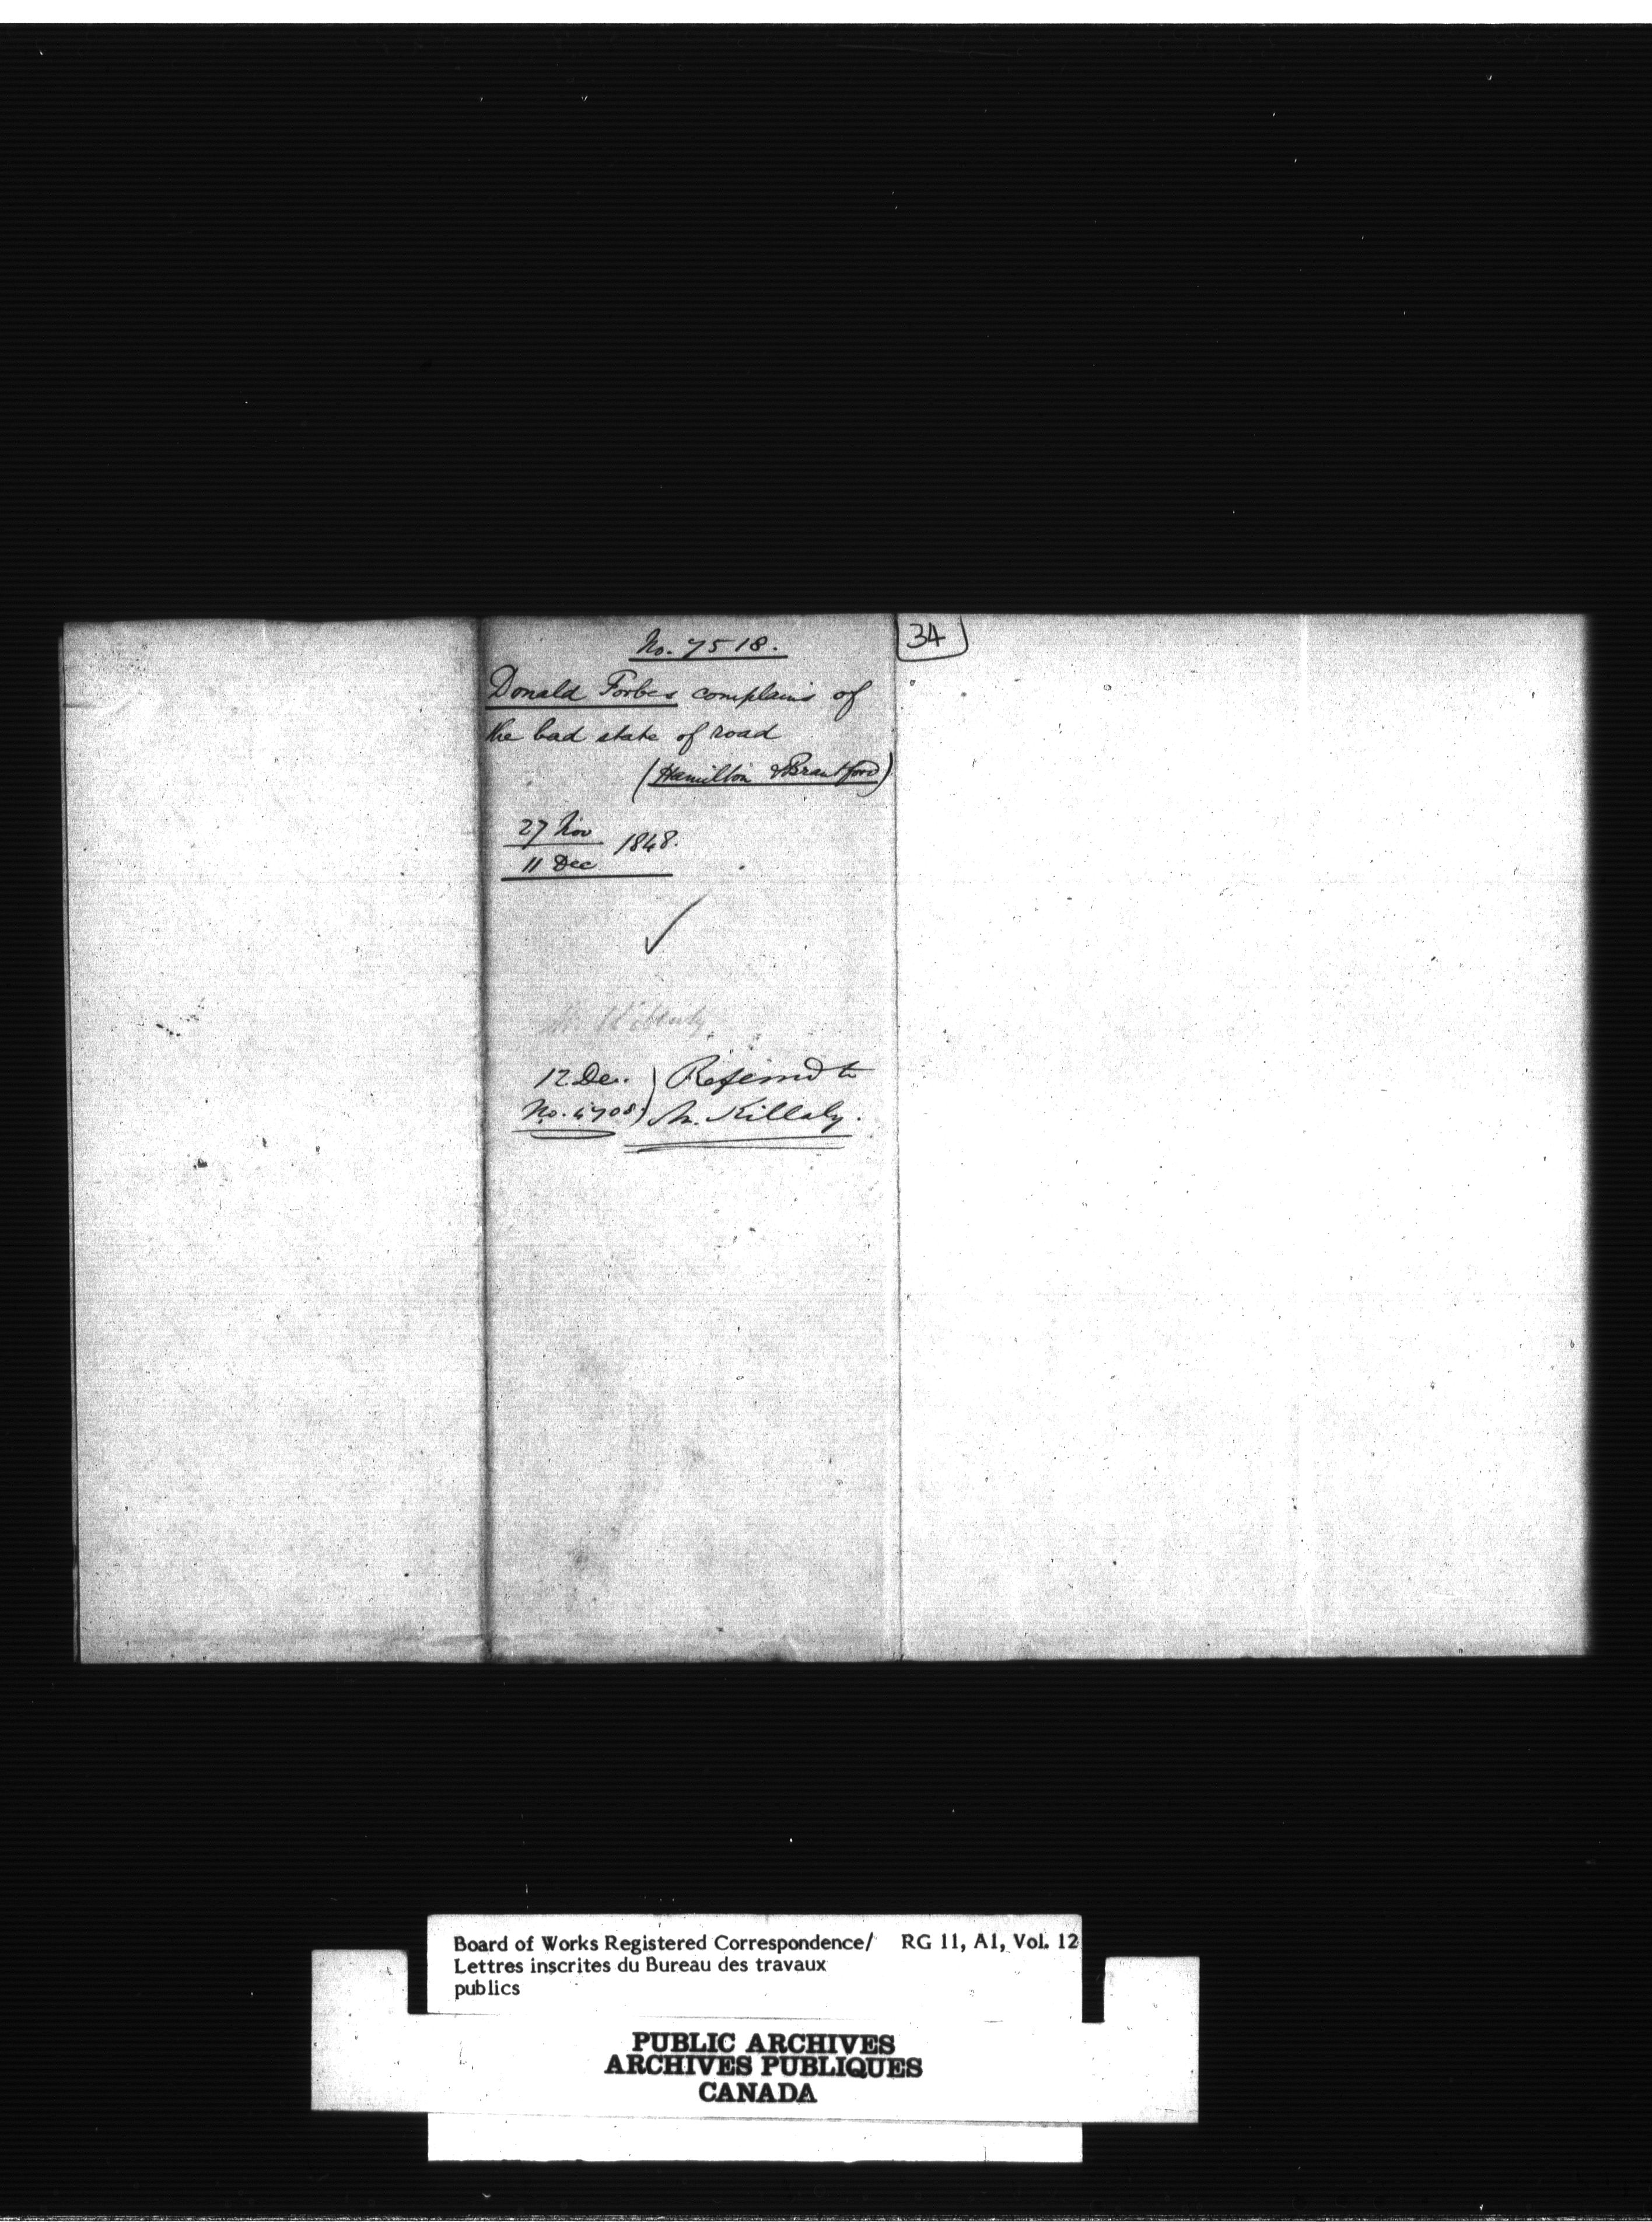 No. 7518.
34
Donald Forbes complains of
the bad state of road
(Hamilton & Brantford)
27 Nov
11 Dec 1848.
12 Dec. Referred to
Mr. Killaly.
Board of Works Registered Correspondence/ RG 11, A1, Vol. 12
Lettres inscrites du Bureau des travaux
publics
PUBLIC ARCHIVES
ARCHIVES PUBLIQUES
CANADA